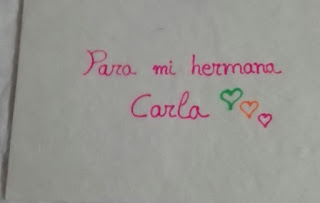 Para mi hermana
Carla